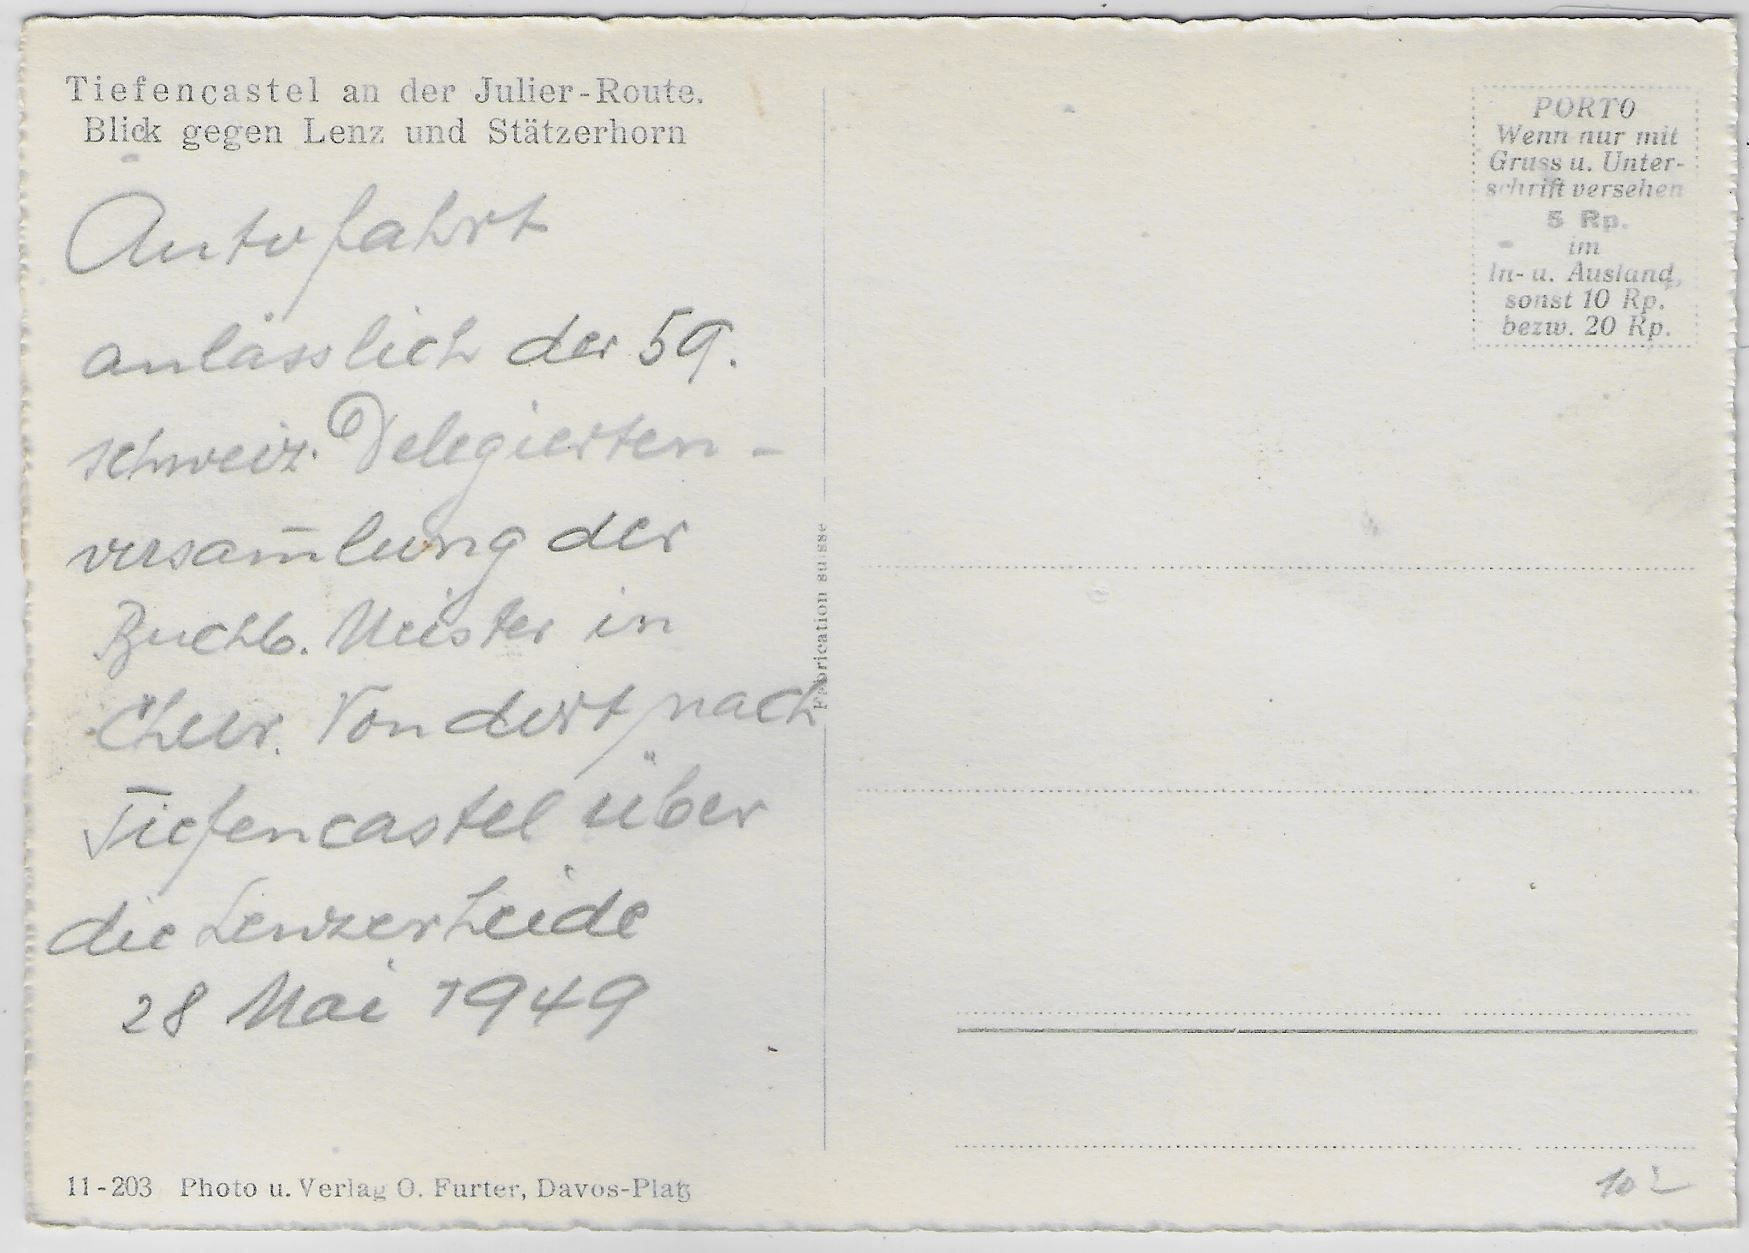 Tiefencastel an der Julier-Route.
Blick gegen Lenz und Stätzerhorn
Autofahrt
anlässlich der 59.
schweiz. Delegierten-
versam̅lung der
Buchb. Meister in
Chur. Von dort nach
Tiefencastel über
die Lenzerheide
28 Mai 1949
11-203 Photo u. Verlag O. Furter, Davos-Platz
Fabrication suisse
PORTO
Wenn nur mit
Gruss u. Unter-
schrift versehen
5 Rp.
im
In- u. Ausland,
sonst 10 Rp.
bezw. 20 Rp.